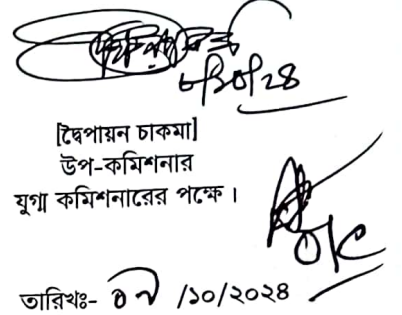 ৮/১০/২৪
[দ্বৈপায়ন চাকমা]
উপ-কমিশনার
যুগ্ম কমিশনারের পক্ষে।
তারিখঃ- ০৭ /১০/২০২৪